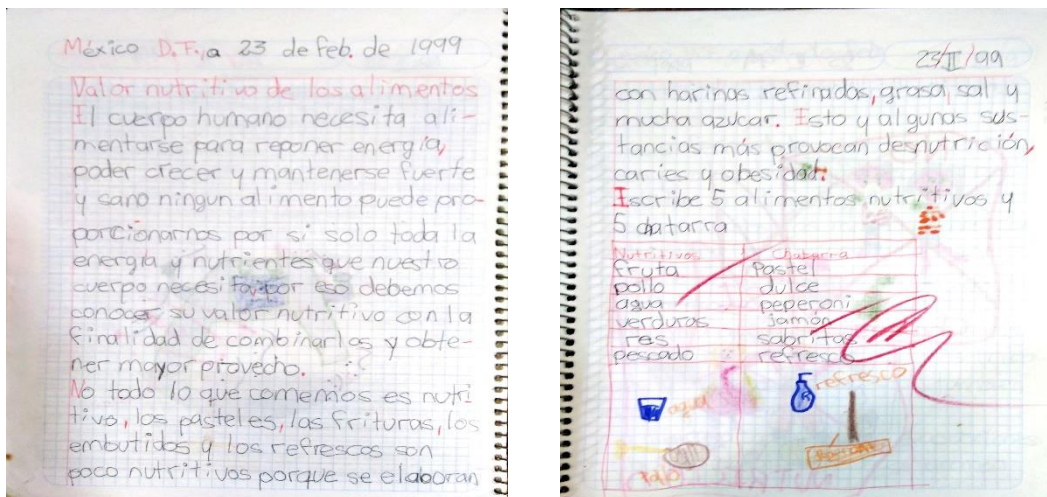 México D.F., a 23 de feb. de 1999
Valor nutritivo de los alimentos
El cuerpo humano necesita ali-
mentarse para reponer energía,
poder crecer y mantenerse fuerte
y sano ningun alimento puede pro-
porcionarnos por si solo toda la
energía y nutrientes que nuestro
cuerpo necesita por eso debemos
conocer su valor nutritivo con la
finalidad de combinarlos y obte-
ner mayor provecho.
No todo lo que comemos es nutri
tivo, los pasteles, las frituras, los
embutidos y los refrescos son
poco nutritivos porque se elaboran
23/II/99
con harinas refinadas, grasa, sal y
mucha azucar. Esto y algunas sus-
tancias más provocan desnutrición,
caries y obesidad.
Escribe 5 alimentos nutritivos y
5 chatarra
Nutritivos Chatarra
fruta Pastel
pollo dulce
agua peperoni
verduras jamón
res sabritas
pescado refresco
agua refresco
pollo